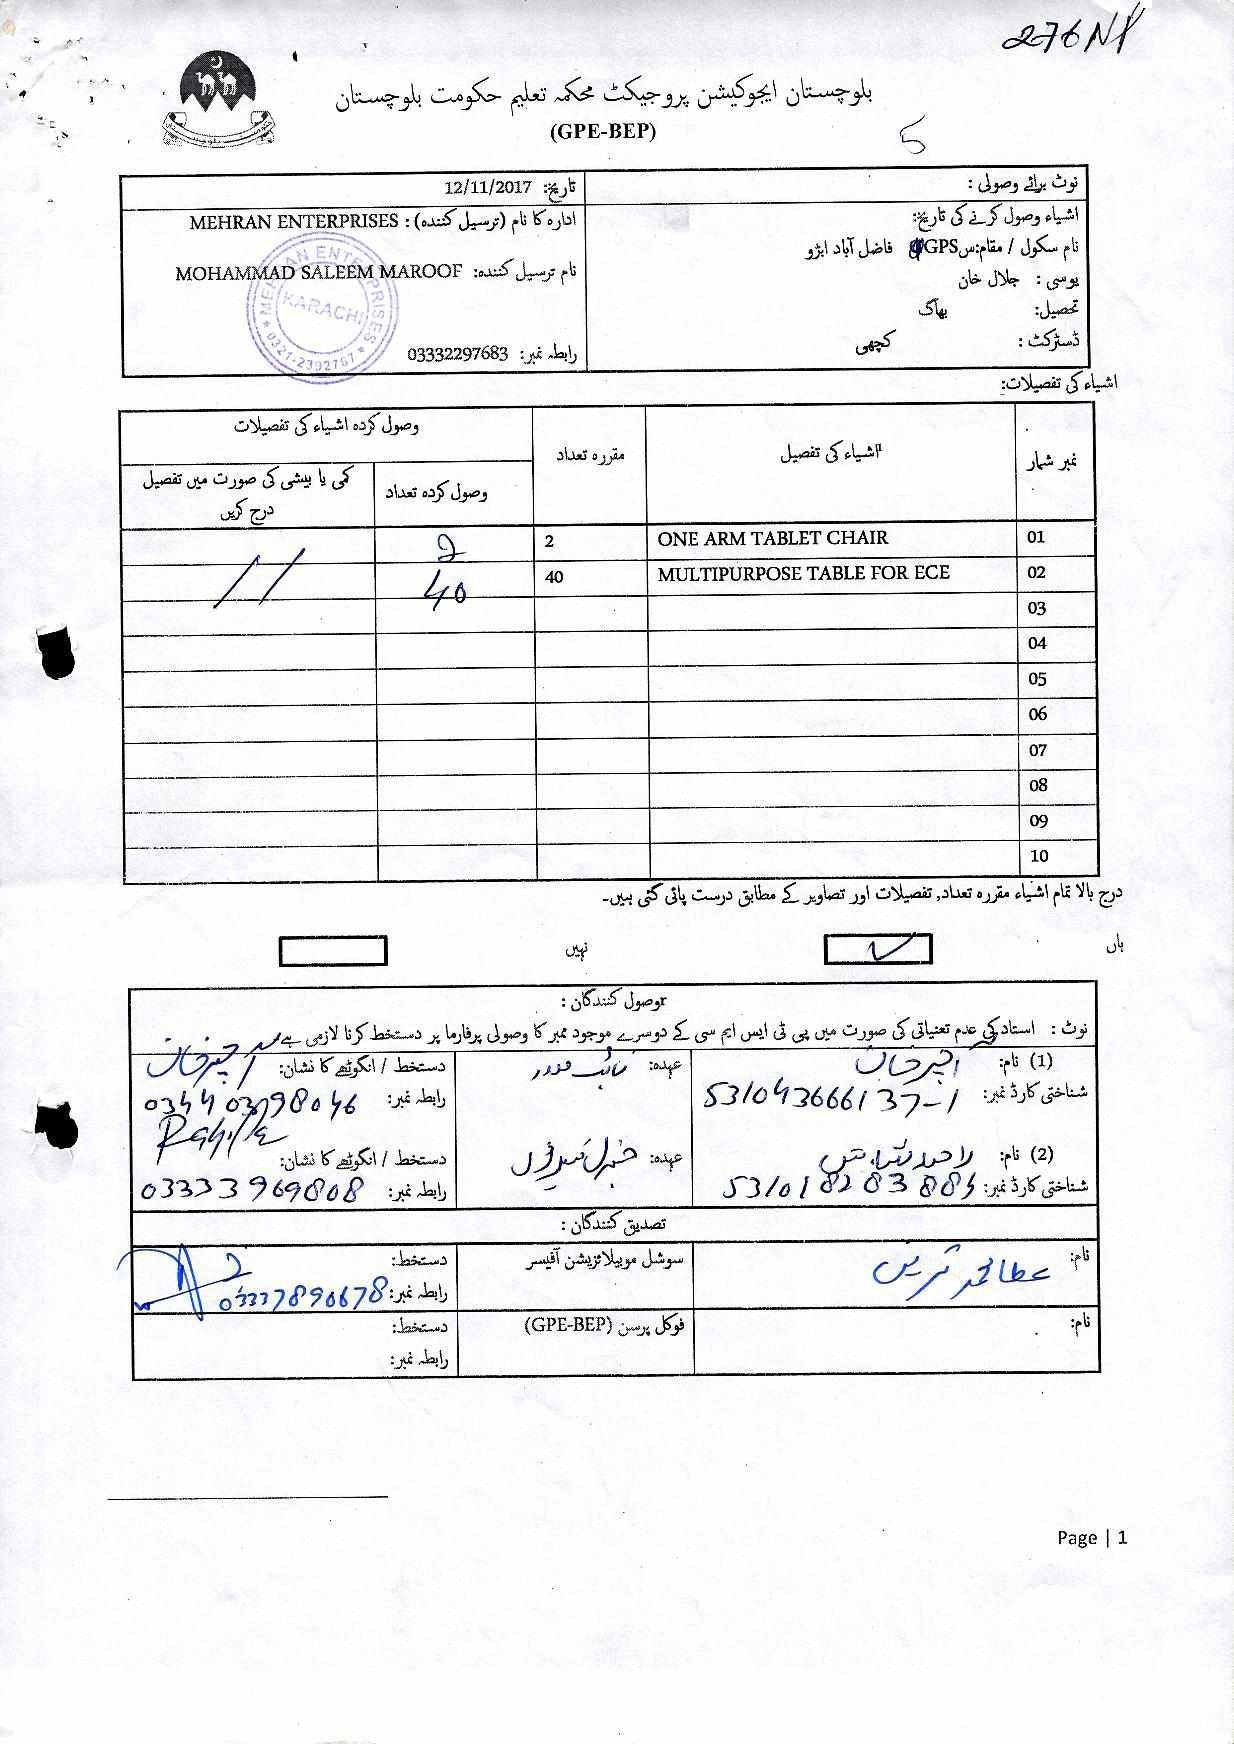 276 NP
بلوچستان ایجوکیشن پروجیکٹ محکمہ تعلیم حکومت بلوچستان
(GPE-BEP)
5
نوٹ برائے وصولی :
تاریخ: 12/11/2017
اشیاء وصول کرنے کی تاریخ:
نام سکول / مقام: GPS فاضل آباد ابڑو
یوسی : جلال خان
تحصیل: بھاگ
ڈسٹرکٹ : کچھی
ادارہ کا نام (ترسیل کنندہ) : MEHRAN ENTERPRISES
نام ترسیل کنندہ: MOHAMMAD SALEEM MAROOF
رابطہ نمبر: 03332297683
MEHRAN ENTERPRISES
KARACHI
0321-2392767
اشیاء کی تفصیلات:
نمبر شمار اشیاء کی تفصیل مقررہ تعداد وصول کردہ اشیاء کی تفصیلات
وصول کردہ تعداد کمی یا بیشی کی صورت میں تفصیل درج کریں
01 ONE ARM TABLET CHAIR 2 2
02 MULTIPURPOSE TABLE FOR ECE 40 40
03
04
05
06
07
08
09
10
درج بالا تمام اشیاء مقررہ تعداد, تفصیلات اور تصاویر کے مطابق درست پائی گئی ہیں۔
ہاں نہیں
وصول کنندگان :
نوٹ : استاد کی عدم تعنیاتی کی صورت میں پی ٹی ایس ایم سی کے دوسرے موجود ممبر کا وصولی پرفارما پر دستخط کرنا لازمی ہے
(1) نام: عہدہ: دستخط / انگوٹھے کا نشان:
شناختی کارڈ نمبر: 531043666137-1 رابطہ نمبر: 03440398046
(2) نام: عہدہ: دستخط / انگوٹھے کا نشان:
شناختی کارڈ نمبر: رابطہ نمبر: 03333969808
تصدیق کنندگان :
نام: عطا محمد سوشل موبیلائزیشن آفیسر دستخط:
رابطہ نمبر: 03337890678
نام: فوکل پرسن (GPE-BEP) دستخط:
رابطہ نمبر:
Page | 1